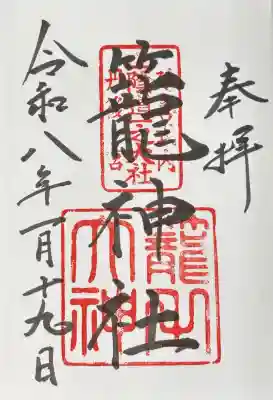 奉拝
籠神社
令和八年一月十九日
籠之
大神